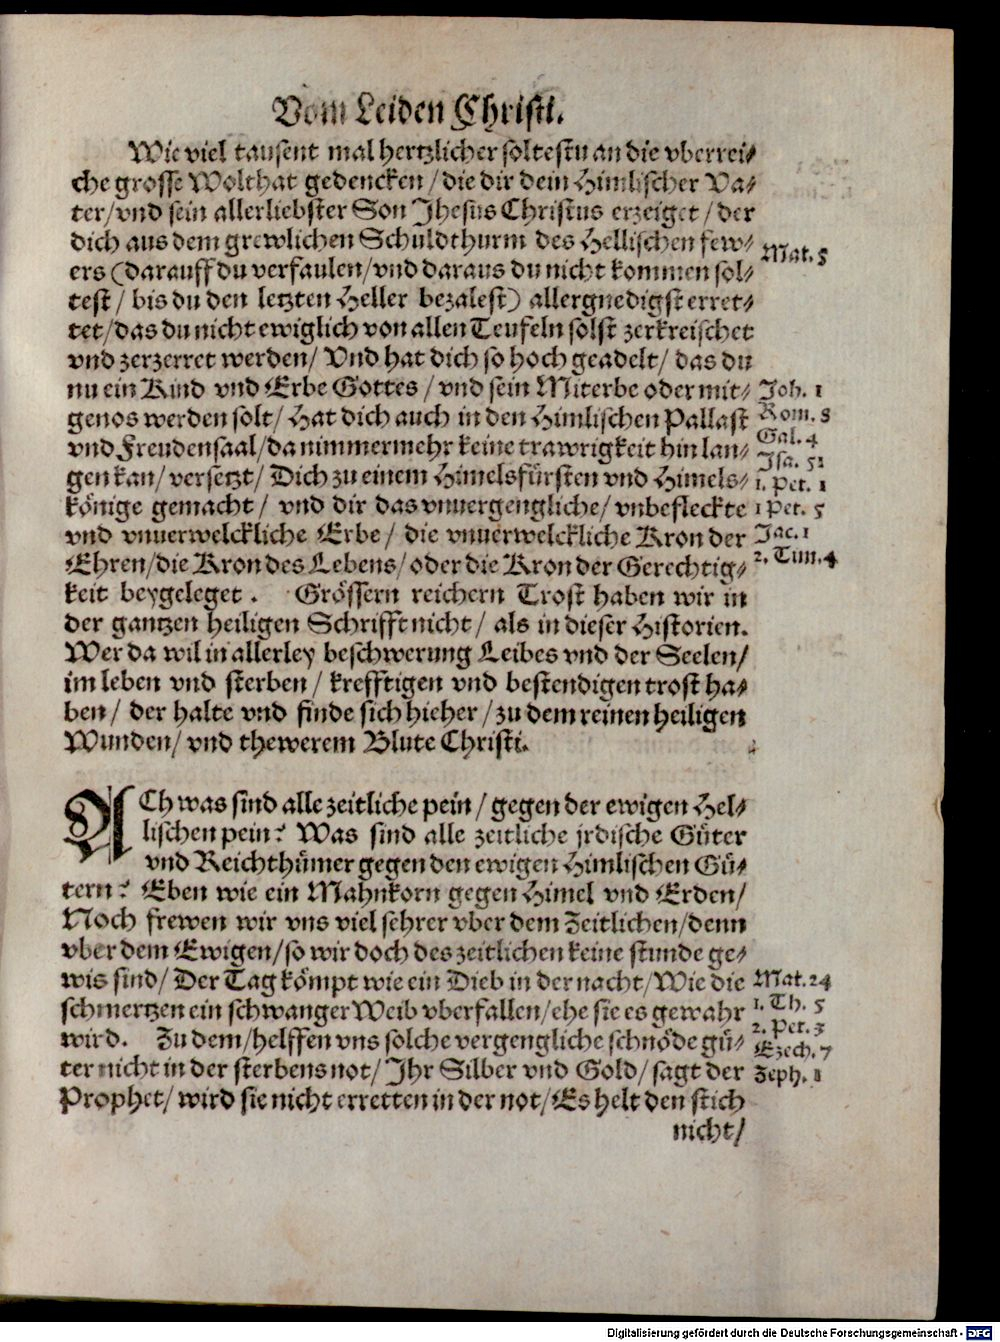 Vom Leiden Christi.
Wie viel tausent mal hertzlicher soltestu an die vberrei⸗
che grosse Wolthat gedencken / die dir dein Himlischer Va⸗
ter/ vnd sein allerliebster Son Jhesus Christus erzeiget / der
dich aus dem grewlichen Schuldthurm des Hellischen few⸗
Mat. 5
ers (darauff du verfaulen/ vnd daraus du nicht kommen sol⸗
test / bis du den letzten Heller bezalest) allergnedigst erret⸗
tet/ das du nicht ewiglich von allen Teufeln solst zerkreischet
vnd zerzerret werden/ Vnd hat dich so hoch geadelt/ das du
nu ein Kind vnd Erbe Gottes / vnd sein Miterbe oder mit⸗
Joh. 1
genos werden solt/ Hat dich auch in den Himlischen Pallast
Rom. 8
vnd Freudensaal/ da nimmermehr keine trawrigkeit hin lan⸗
Gal. 4
Isa. 51
gen kan/ versetzt/ Dich zu einem Himelsfürsten vnd Himels⸗
1. Pet. 1
könige gemacht/ vnd dir das vnuergengliche/ vnbefleckte
1 Pet. 5
vnd vnuerwelckliche Erbe/ die vnuerwelckliche Kron der
Jac. 1
Ehren/ die Kron des Lebens/ oder die Kron der Gerechtig⸗
2. Tim. 4
keit beygeleget. Grössern reichern Trost haben wir in
der gantzen heiligen Schrifft nicht/ als in dieser Historien.
Wer da wil in allerley beschwerung Leibes vnd der Seelen/
im leben vnd sterben/ krefftigen vnd bestendigen trost ha⸗
ben/ der halte vnd finde sich hieher/ zu dem reinen heiligen
Wunden/ vnd thewerem Blute Christi.
ACh was sind alle zeitliche pein/ gegen der ewigen Hel⸗
lischen pein? Was sind alle zeitliche jrdische Güter
vnd Reichthümer gegen den ewigen Himlischen Gü⸗
tern? Eben wie ein Mahnkorn gegen Himel vnd Erden/
Noch frewen wir vns viel sehrer vber dem Zeitlichen/ denn
vber dem Ewigen/ so wir doch des zeitlichen keine stunde ge⸗
wis sind/ Der Tag kömpt wie ein Dieb in der nacht/ Wie die
Mat. 24
schmertzen ein schwanger Weib vberfallen/ ehe sie es gewahr
1. Th. 5
wird. Zu dem/ helffen vns solche vergengliche schnöde gü⸗
2. Pet. 3
Ezech. 7
ter nicht in der sterbens not/ Ihr Silber vnd Gold/ sagt der
Zeph. 1
Prophet/ wird sie nicht erretten in der not/ Es helt den stich
nicht/
Digitalisierung gefördert durch die Deutsche Forschungsgemeinschaft - DFG